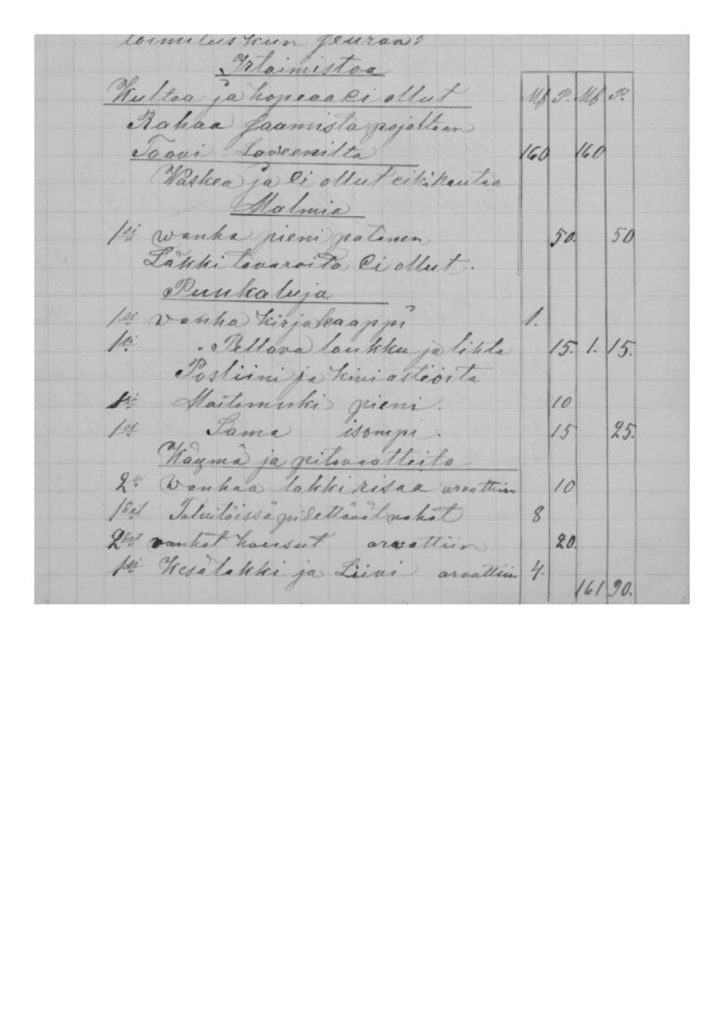 toimitus kun seuraa:
Irtaimistoa
Kultaa ja hopeaa ei ollut Mk P. Mk P.
Rahaa saamista pojaltaan
Taavi Laveenilta 160 160
Waskea ja ei ollut eikä rautaa
Malmia
1si wanha pieni patanen 50. 50
Läkki tavaroita Ei ollut.
Puukaluja
1si vanha kirjakaappi 1.
1si " Pellava loukku ja lihta 15. 1. 15.
Posliini ja kivi astioita
1si Maitomuki pieni. 10
1si Sama isompi. 15 25.
Käymä ja pitovaatteita
2si Wanhaa lakki risaa arvattiin 10
1 Talvitöissä pidettävät 8
2 vanhat housut arvattiin 20.
1si Kesälakki ja Liivi arvattiin 4.
161 90.